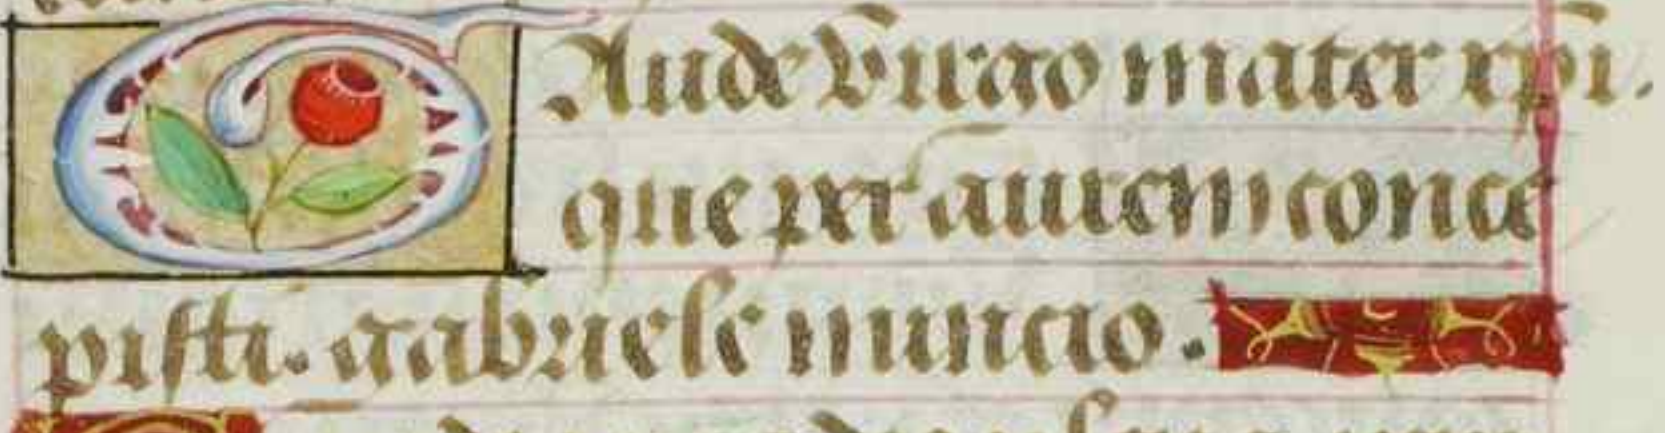 GAude virgo mater xp̄i.
que per aurem conce
pisti. gabriele nuncio.